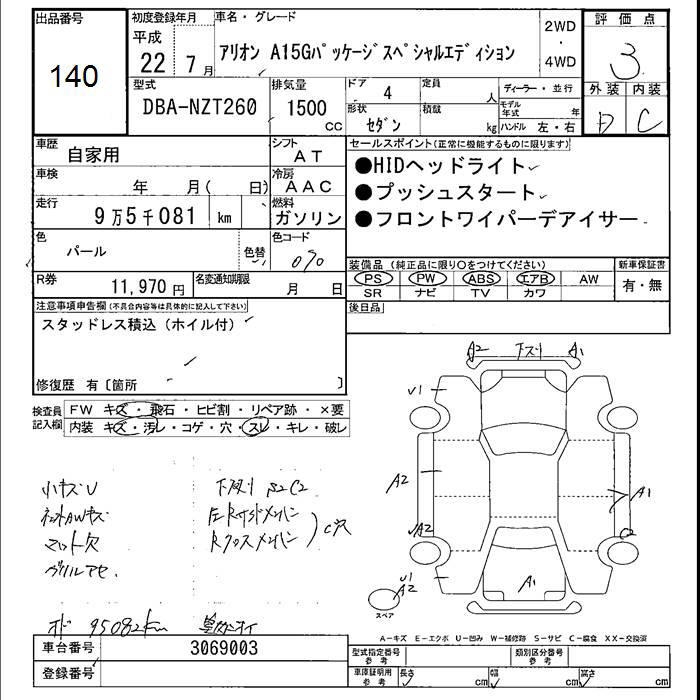 出品番号
140
初度登録年月
平成
22 7月
車名・グレード
アリオン A15Gパッケージスペシャルエディション
2WD
・
4WD
評価点
3
型式
DBA-NZT260
排気量
1500
CC
ドア 4
定員
人
形状
セダン
積載
kg
ディーラー・並行
モデル年式 年
ハンドル 左・右
外装 内装
C
車歴
自家用
シフト
AT
車検
年 月( 日)
冷房
AAC
走行
9万5千081 km
燃料
ガソリン
色
パール
色替
色コード
070
R券
11,970円
名変通知期限
月 日
セールスポイント(正常に機能するものに限ります)
●HIDヘッドライト
●プッシュスタート
●フロントワイパーデアイサー
装備品(純正品に限り○をつけてください)
PS PW ABS エアB AW
SR ナビ TV カワ
新車保証書
有・無
後日品
注意事項申告欄(不具合内容等は具体的に記入して下さい)
スタッドレス積込(ホイル付)
修復歴 有〔箇所 〕
検査員記入欄
FW キズ・飛石・ヒビ割・リペア跡・×要
内装 キズ・汚レ・コゲ・穴・スレ・キレ・破レ
A2 下スリ A1
U1
A2
A1
A2
C2
U1
A2
A1
スペア
小キズU
マット欠
下廻り S2C2
C穴
95082km
A-キズ E-エクボ U-凹み W-補修跡 S-サビ C-腐食 XX-交換済
車台番号
3069003
登録番号
型式指定番号
参考
類別区分番号
参考
車庫証明用
参考
長さ cm
幅 cm
高さ cm